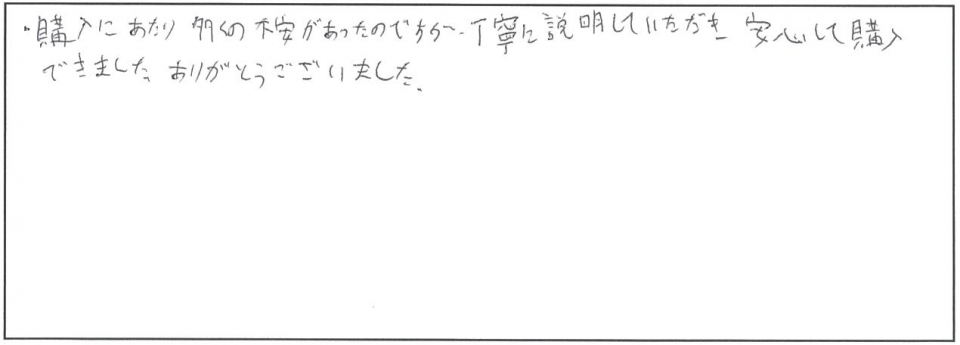 ・購入にあたり多くの不安があったのですが、丁寧に説明していただき安心して購入
できました。ありがとうございました。